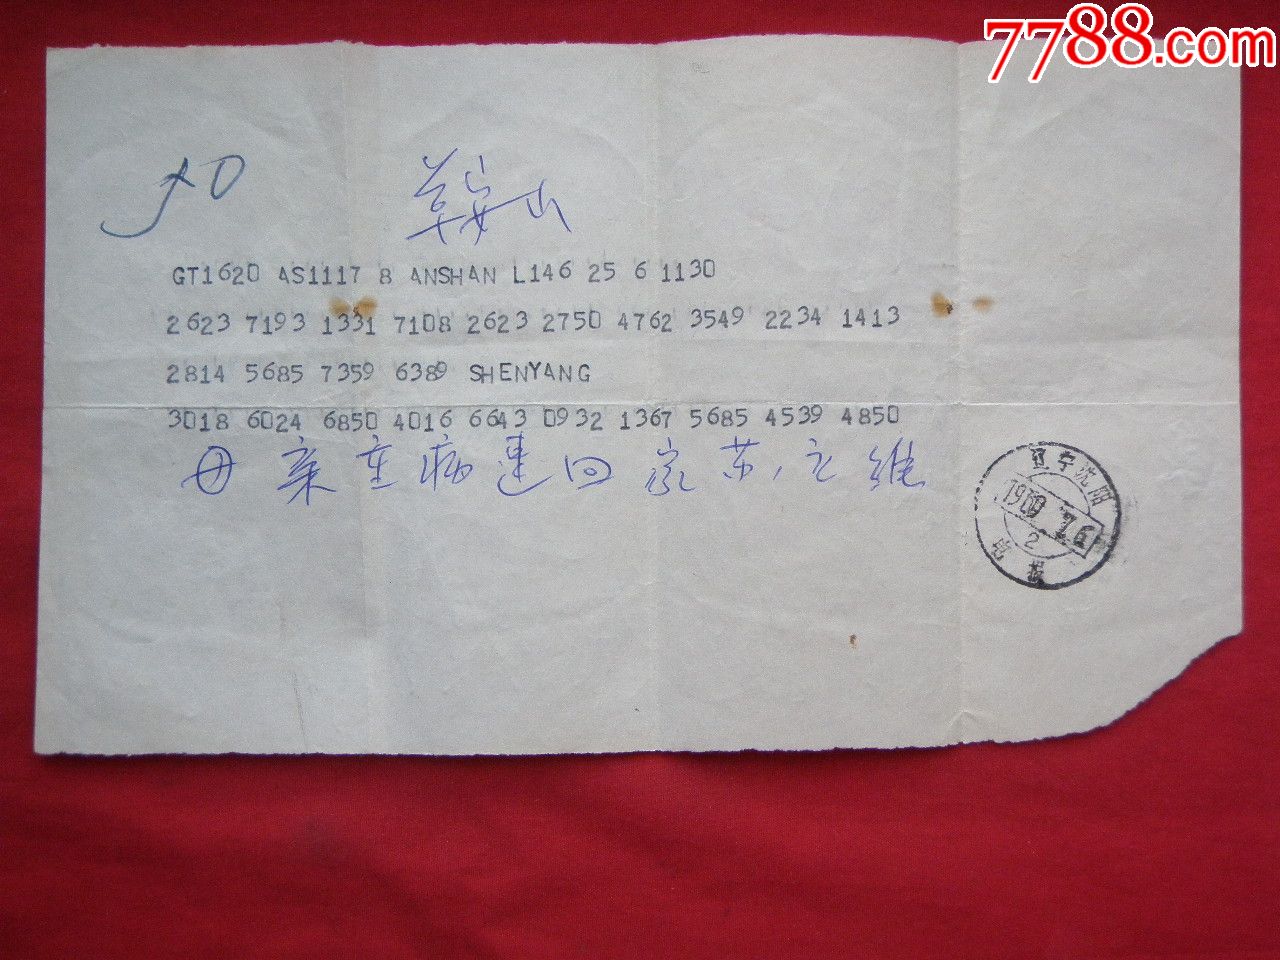 7788.com
鞍山
GT1620 AS1117 8 ANSHAN L146 25 6 1130
2623 7193 1331 7108 2623 2750 4762 3549 2234 1413
2814 5685 7359 6389 SHENYANG
3018 6024 6850 4016 6643 0932 1367 5685 4539 4850
母亲重病速回家苏立维
辽宁沈阳
7 6
2
电报